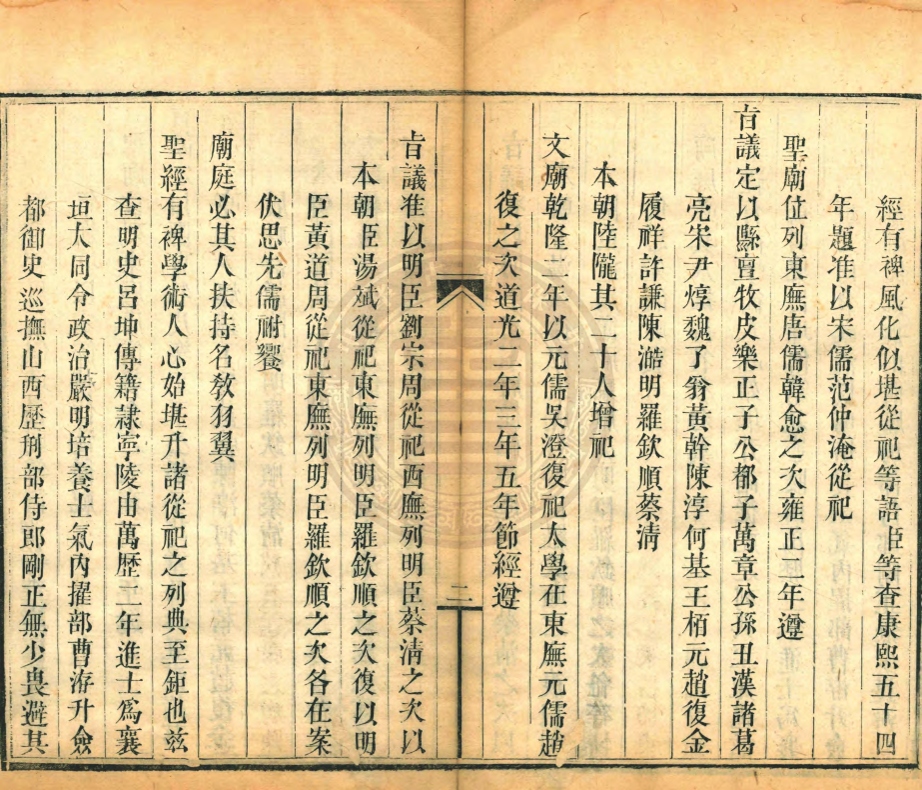 經有裨風化似堪從祀等語臣等查康熙五十四
年題准以宋儒范仲淹從祀
聖廟位列東廡唐儒韓愈之次雍正二年遵
旨議定以縣亶牧皮樂正子公都子萬章公孫丑漢諸葛
亮宋尹焞魏了翁黃幹陳淳何基王栢元趙復金
履祥許謙陳澔明羅欽順蔡清
本朝陸隴其二十人增祀
文廟乾隆二年以元儒吳澄復祀太學在東廡元儒趙
復之次道光二年三年五年節經遵
二
旨議准以明臣劉宗周從祀西廡列明臣蔡清之次以
本朝臣湯斌從祀東廡列明臣羅欽順之次復以明
臣黃道周從祀東廡列明臣羅欽順之次各在案
伏思先儒祔饗
廟庭必其人扶持名敎羽翼
聖經有裨學術人心始堪升諸從祀之列典至鉅也茲
查明史呂坤傳籍隷寧陵由萬歷二年進士爲襄
垣大同令政治嚴明培養士氣內擢部曹洊升僉
都御史巡撫山西歷刑部侍郎剛正無少畏避其